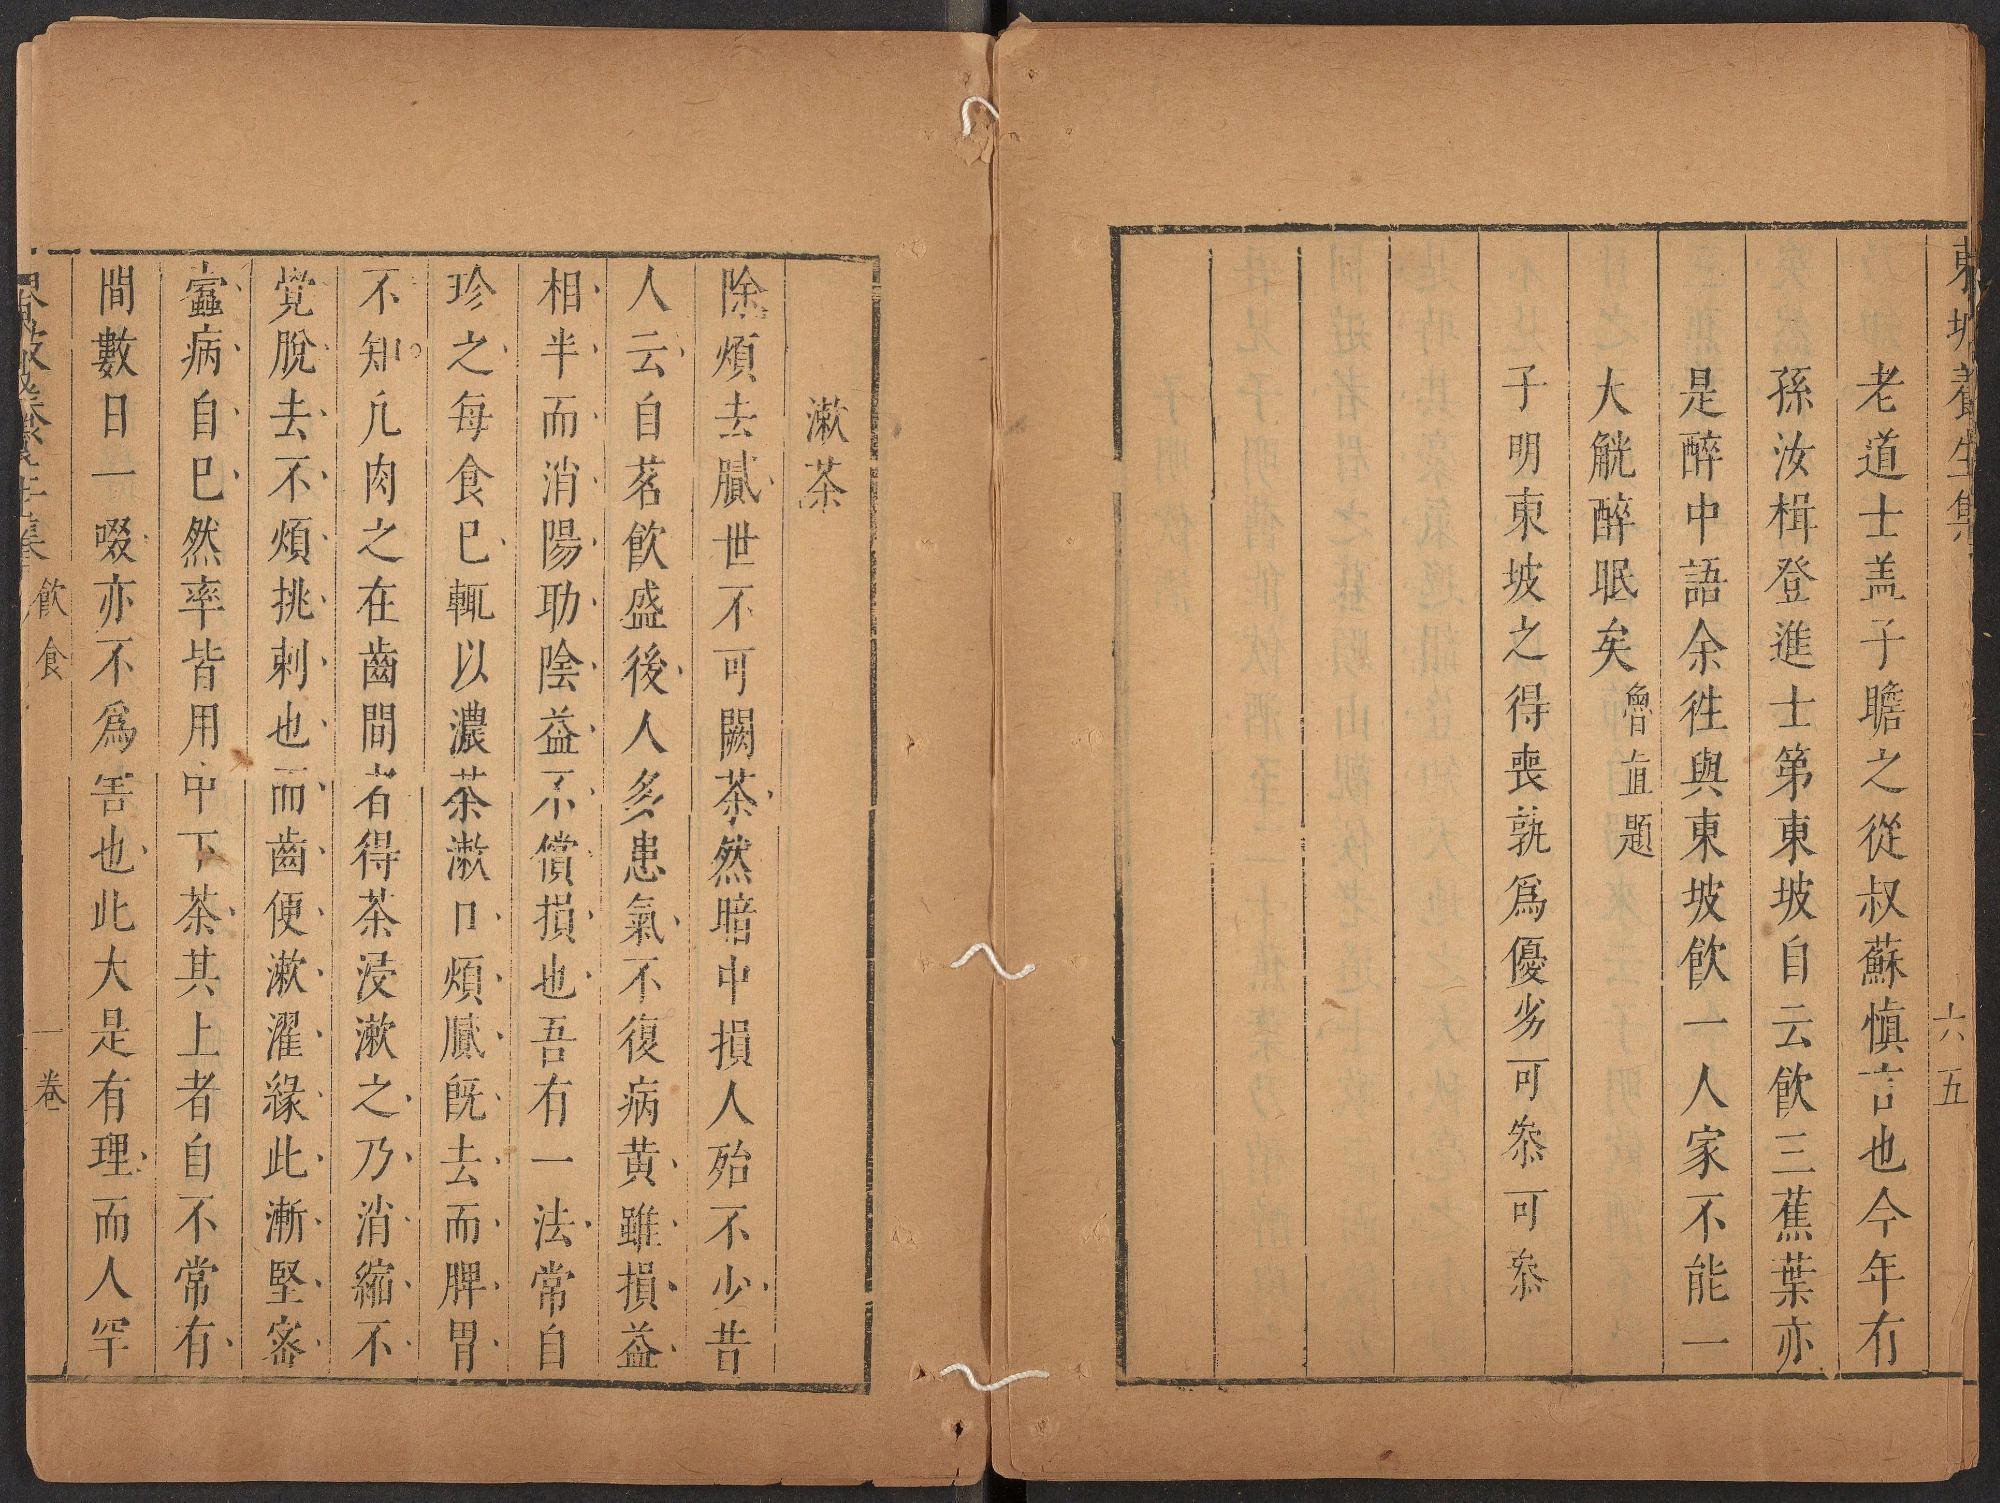 東坡養生集
六五
老道士盖子瞻之從叔蘇慎言也今年有
孫汝楫登進士第東坡自云飲三蕉葉亦
是醉中語余徃與東坡飲一人家不能一
大觥醉眠矣魯直題
子明東坡之得喪孰爲優劣可叅可叅
漱茶
除煩去膩世不可闕茶然暗中損人殆不少昔
人云自茗飲盛後人多患氣不復病黄雖損益
相半而消陽助陰益不償損也吾有一法常自
珍之每食已輒以濃茶漱口煩膩旣去而脾胃
不知凢肉之在齒間者得茶浸漱之乃消縮不
覺脫去不煩挑刺也而齒便漱濯緣此漸堅密
蠧病自已然率皆用中下茶其上者自不常有
間數日一啜亦不爲害也此大是有理而人罕
飲食
卷一